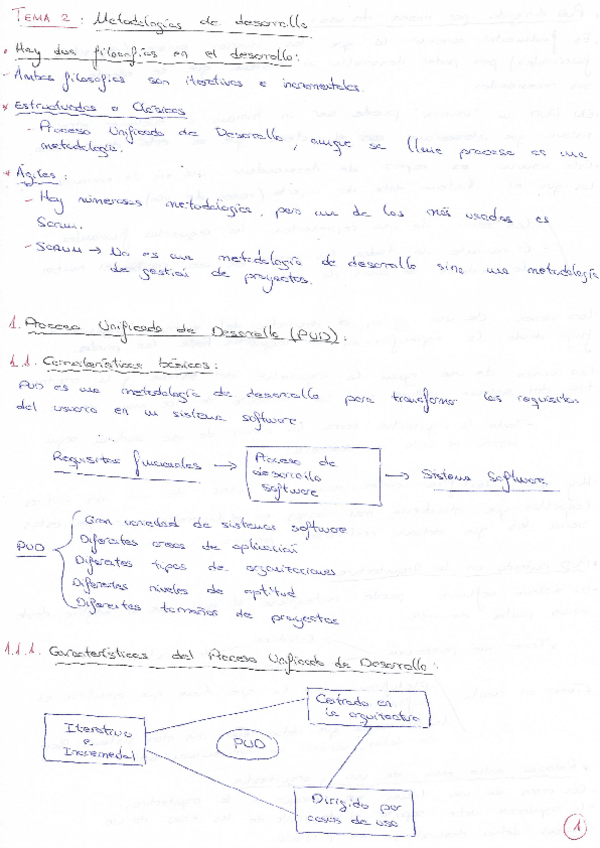 TEMA 2: Metodologías de desarrollo
Hay dos filosofías en el desarrollo:
- Ambas filosofías son iterativas e incrementales.
* Estructuradas o Clásicas
- Proceso Unificado de Desarrollo, aunque se llame proceso es una
metodología.
* Ágiles:
- Hay numerosas metodologías, pero una de las más usadas es
Scrum.
- SCRUM → No es una metodología de desarrollo sino una metodología
de gestión de proyectos.
1. Proceso Unificado de Desarrollo (PUD):
1.1. Características básicas:
PUD es una metodología de desarrollo para transformar los requisitos
del usuario en un sistema software.
Requisitos funcionales → Proceso de desarrollo software → Sistema Software
PUD
Gran variedad de sistemas software
Diferentes areas de aplicación
Diferentes tipos de organizaciones
Diferentes niveles de aptitud
Diferentes tamaños de proyectos
1.1.1. Características del Proceso Unificado de Desarrollo:
Centrado en
la arquitectura
Iterativo
e
Incremental
PUD
Dirigido por
casos de uso
1